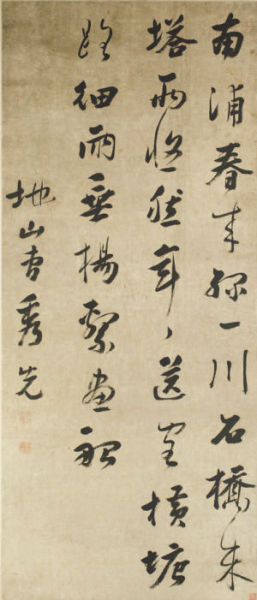 南浦春来綠一川石橋朱
塔兩依然年々送客橫塘
路細雨垂楊繫畫船
地山曹秀先